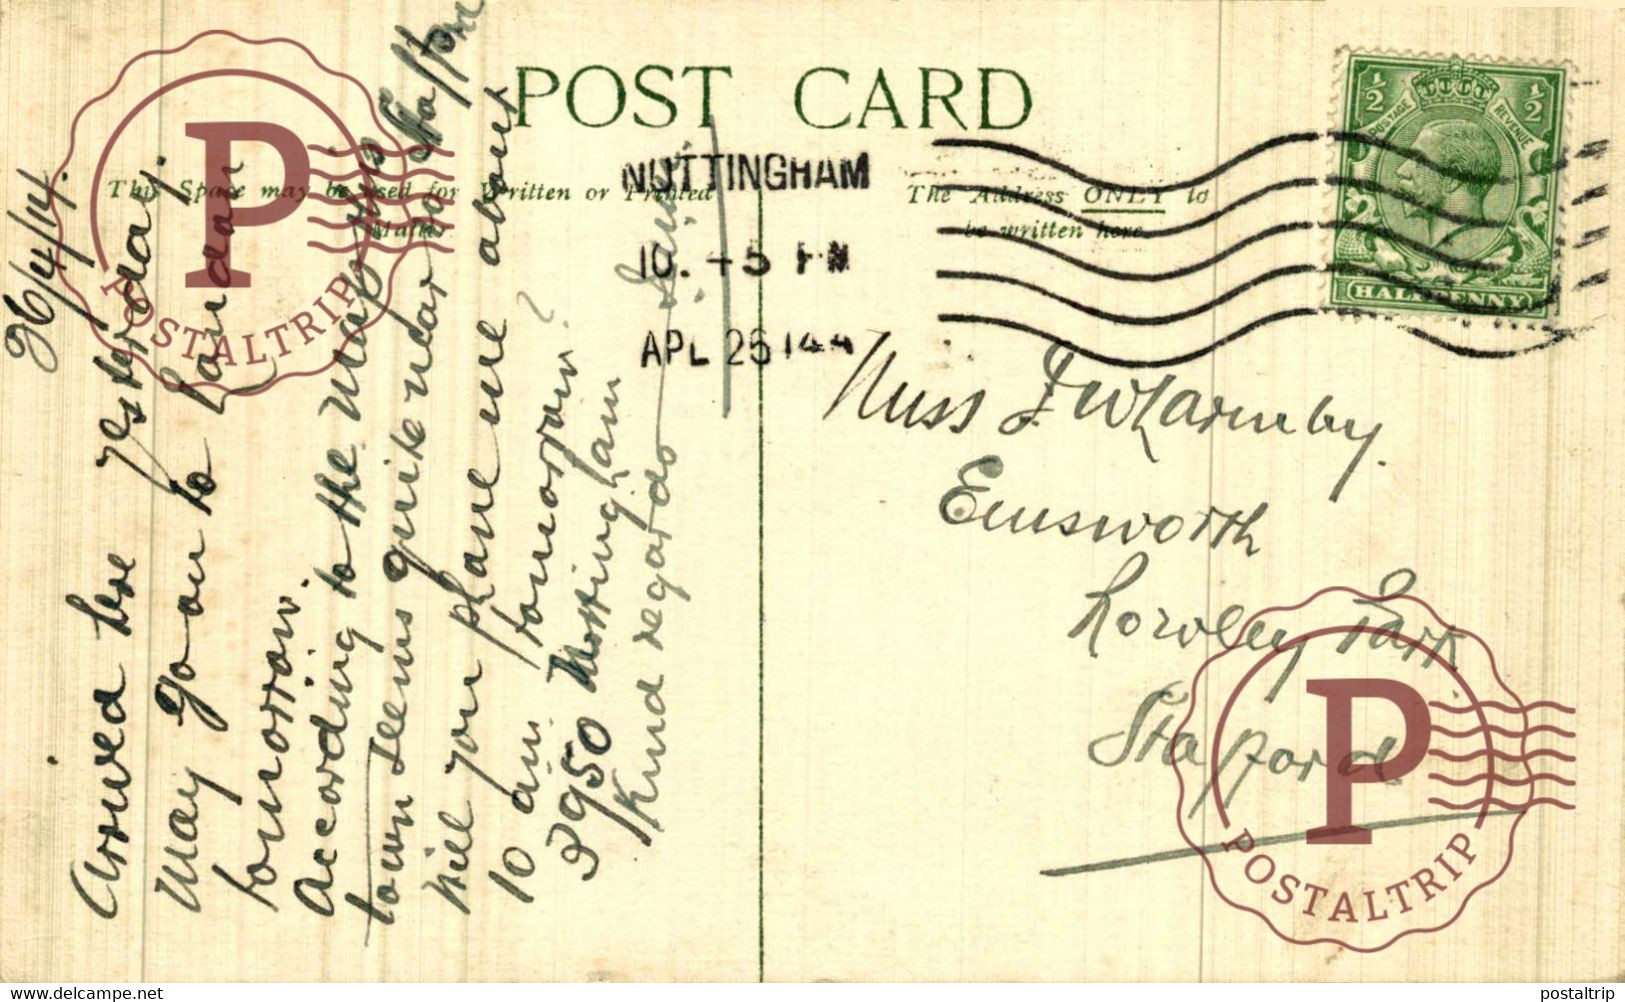 POST CARD
This Space may be used for Written or Printed
Matter.
The Address ONLY to
be written here.
NOTTINGHAM
10.45 PM
APL 26 14
½ ½
POSTAGE REVENUE
HALFPENNY
26/4/14.
Arrived here yesterday.
May go on to London
tomorrow.
According to the Map this
town seems quite near to Stafford
Will you phone me about
10 am tomorrow?
3950 Nottingham
Kind regards
Miss Larmby.
Emsworth
Rowley Park
Stafford
POSTALTRIP
POSTALTRIP
www.delcampe.net
postaltrip